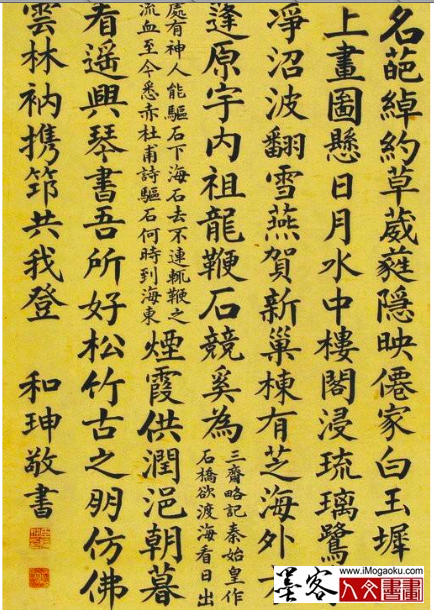 名葩綽約草葳蕤隱映僊家白玉墀
上畫圖懸日月水中樓閣浸琉璃鷺
凈沼波翻雪燕賀新巢棟有芝海外
逢原宇内祖龍鞭石競奚為
三齊略記秦始皇作
石橋欲渡海看日出
處有神人能驅石下海石去不速輒鞭之
流血至今悉赤杜甫詩驅石何時到海東
煙霞供潤浥朝暮
看遥興琴書吾所好松竹古之朋仿佛
雲林衲携筇共我登
和珅敬書
墨客
www.iMogaoku.com
人文書畫